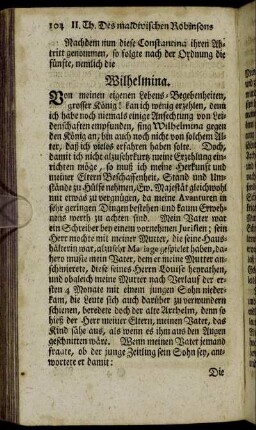 104 II. Th. Des maldivischen Robinsons
Nachdem nun diese Constantina ihren Ab-
tritt genommen, so folgte nach der Ordnung die
fünfte, nemlich die
Wilhelmina.
Von meinen eigenen Lebens-Begebenheiten,
grosser König! kan ich wenig erzehlen, denn
ich habe noch niemals einige Anfechtung von Lei-
denschaften empfunden, fing Wilhelmina gegen
den König an, bin auch noch nicht von solchem Al-
ter, daß ich vieles erfahren haben solte. Doch,
damit ich nicht alzusehr kurtz meine Erzehlung ein-
richten möge, so muß ich meine Herkunft und
meiner Eltern Beschaffenheit, Stand und Um-
stände zu Hülfe nehmen, Ew. Majestät gleichwohl
mit etwas zu vergnügen, da meine Avanturen in
sehr geringen Dingen bestehen und kaum Erweh-
nens werth zu achten sind. Mein Vater war
ein Schreiber bey einem vornehmen Juristen; sein
Herr mochte mit meiner Mutter, die seine Haus-
hälterin war, à la Mariage gespielet haben, da-
hero muste mein Vater, dem er meine Mutter an-
schmierete, diese seines Herrn Louise heyrathen,
und obgleich meine Mutter nach Verlauf der er-
sten 4 Monate mit einem jungen Sohn nieder-
kam, die Leute sich auch darüber zu verwundern
schienen, beredete doch der alte
hieß der Herr meiner Eltern, meinen Vater, das
Kind sähe aus, als wenn es ihm aus den Augen
geschnitten wäre. Wenn meinen Vater jemand
fragte, ob der junge Zeitling sein Sohn sey, ant-
wortete er damit:
Die